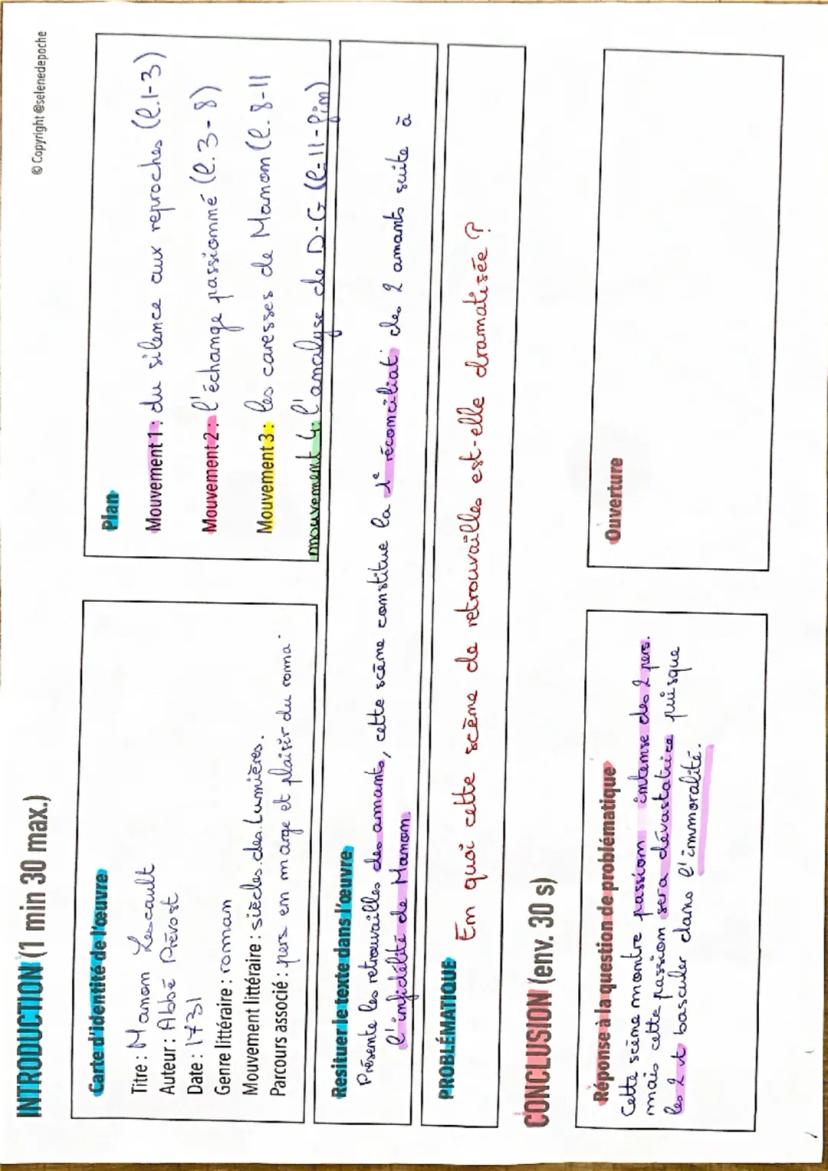 © Copyright @selenedepoche
INTRODUCTION (1 min 30 max.)
Carte d'identité de l'œuvre
Titre : Manon Lescault
Auteur : Abbé Prévost
Date : 1731
Genre littéraire : roman
Mouvement littéraire : siècles des Lumières.
Parcours associé : pers en marge et plaisir du roma
Plan
Mouvement 1 : du silence aux reproches (l.1-3)
Mouvement 2 : l'échange passionné (l.3-8)
Mouvement 3 : les caresses de Manon (l.8-11
mouvement 4 : l'analyse de D-G (l-11-fin)
Resituer le texte dans l'œuvre
Présente les retrouvailles des amants, cette scène constitue la 1e réconciliat° des 2 amants suite à
l'infidélité de Manon.
PROBLÉMATIQUE En quoi cette scène de retrouvailles est-elle dramatisée ?
CONCLUSION (env. 30 s)
Réponse à la question de problématique
Cette scène montre passion intense des 2 pers.
mais cette passion sera dévastatrice puisque
les 2 vt basculer dans l'immoralité.
Ouverture